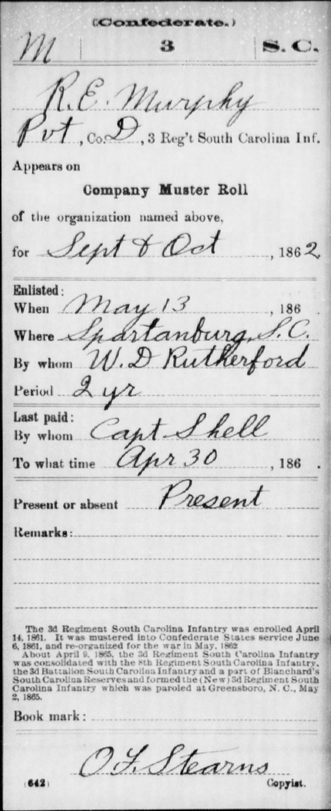 (Confederate.)
M 3 S.C.
R.E. Murphy
Pvt, Co. D, 3 Reg't South Carolina Inf.
Appears on
Company Muster Roll
of the organization named above,
for Sept & Oct, 1862
Enlisted:
When May 13, 186 .
Where Spartanburg, S.C.
By whom W. D Rutherford
Period 2 yr
Last paid:
By whom Capt Shell
To what time Apr 30, 186 .
Present or absent Present
Remarks:
The 3d Regiment South Carolina Infantry was enrolled April
14, 1861. It was mustered into Confederate States service June
6, 1861, and re-organized for the war in May, 1862
About April 9, 1865, the 3d Regiment South Carolina Infantry
was consolidated with the 8th Regiment South Carolina Infantry,
the 3d Battalion South Carolina Infantry and a part of Blanchard's
South Carolina Reserves and formed the (New) 3d Regiment South
Carolina Infantry which was paroled at Greensboro, N. C., May
2, 1865.
Book mark:
O F. Stearns
(642) Copyist.